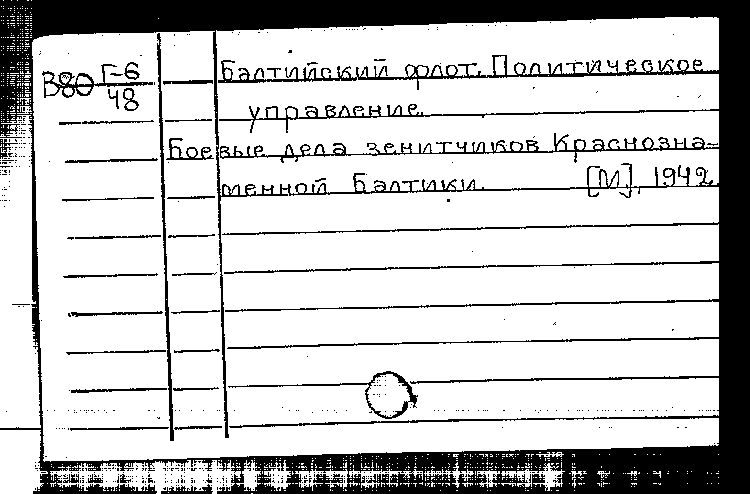 В80 Г-6/48
Балтийский флот. Политическое
управление.
Боевые дела зенитчиков Краснозна-
менной Балтики. [М], 1942.